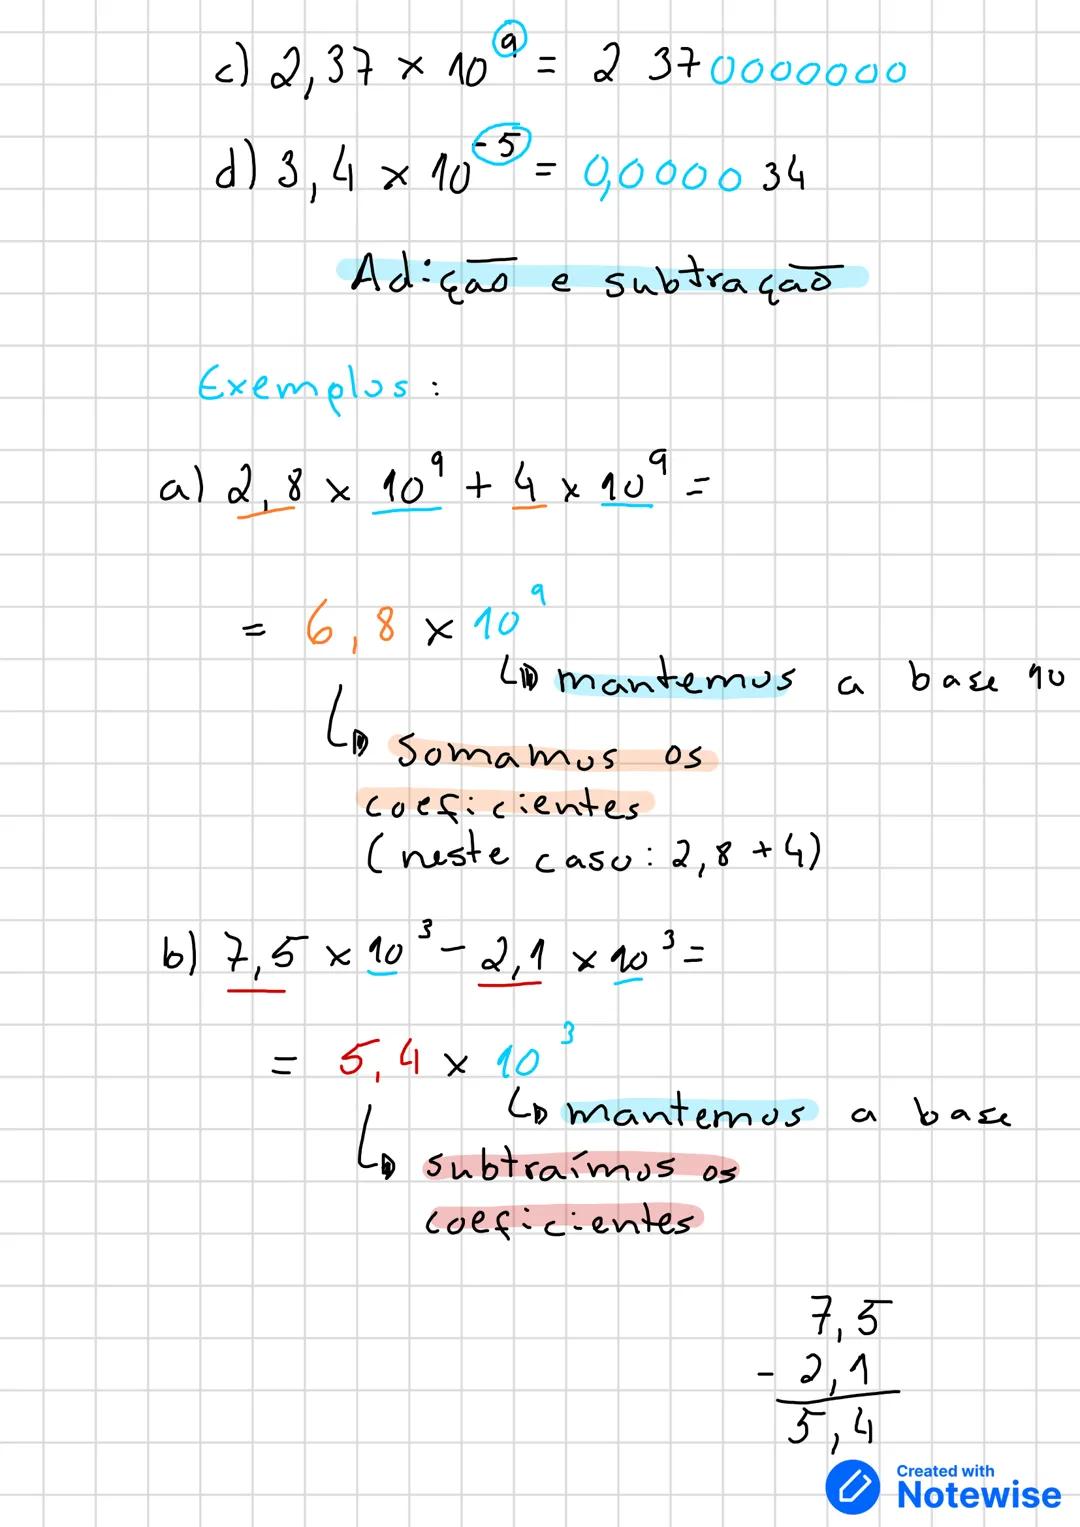 c) 2,37 × 10⁹ = 2 370000000
d) 3,4 × 10⁻⁵ = 0,0000 34
Adição e subtração
Exemplos :
a) 2,8 × 10⁹ + 4 × 10⁹ =
= 6,8 × 10⁹
↳ mantemos a base 10
↳ somamos os
coeficientes
(neste caso: 2,8 + 4)
b) 7,5 × 10³ - 2,1 × 10³ =
= 5,4 × 10³
↳ mantemos a base
↳ subtraímos os
coeficientes
7,5
- 2,1
5,4
Created with
Notewise